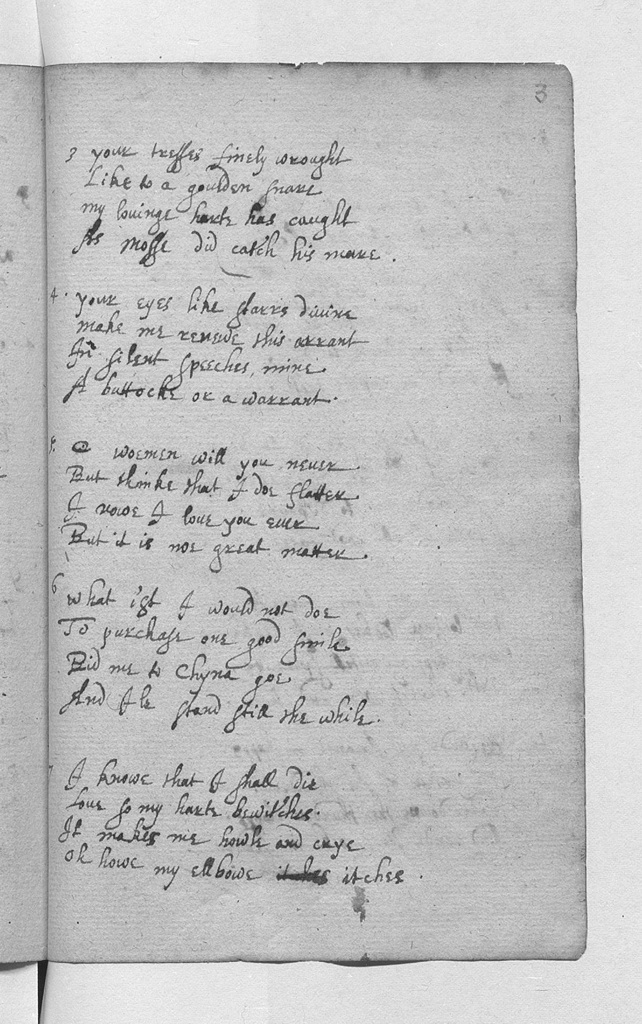 3
3 your tresses finely wrought
Like to a goulden snare
my louinge harte has caught
As Mosse did catch his mare .
4. your eyes like starrs divine
make me renewe this arrant
In silent speeches, mine
A buttocke or a warrant.
5. O woemen will you neuer
But thinke that I doe flatter
I vowe I love you euer
But it is noe great matter.
6 What ist I would not doe
To purchase one good smile
Bid me to Chyna goe
And Ile stand still the while.
7 I knowe that I shall die
Love so my harte bewitches.
It makes me howle and crye
Oh howe my ellbowe itches itches .